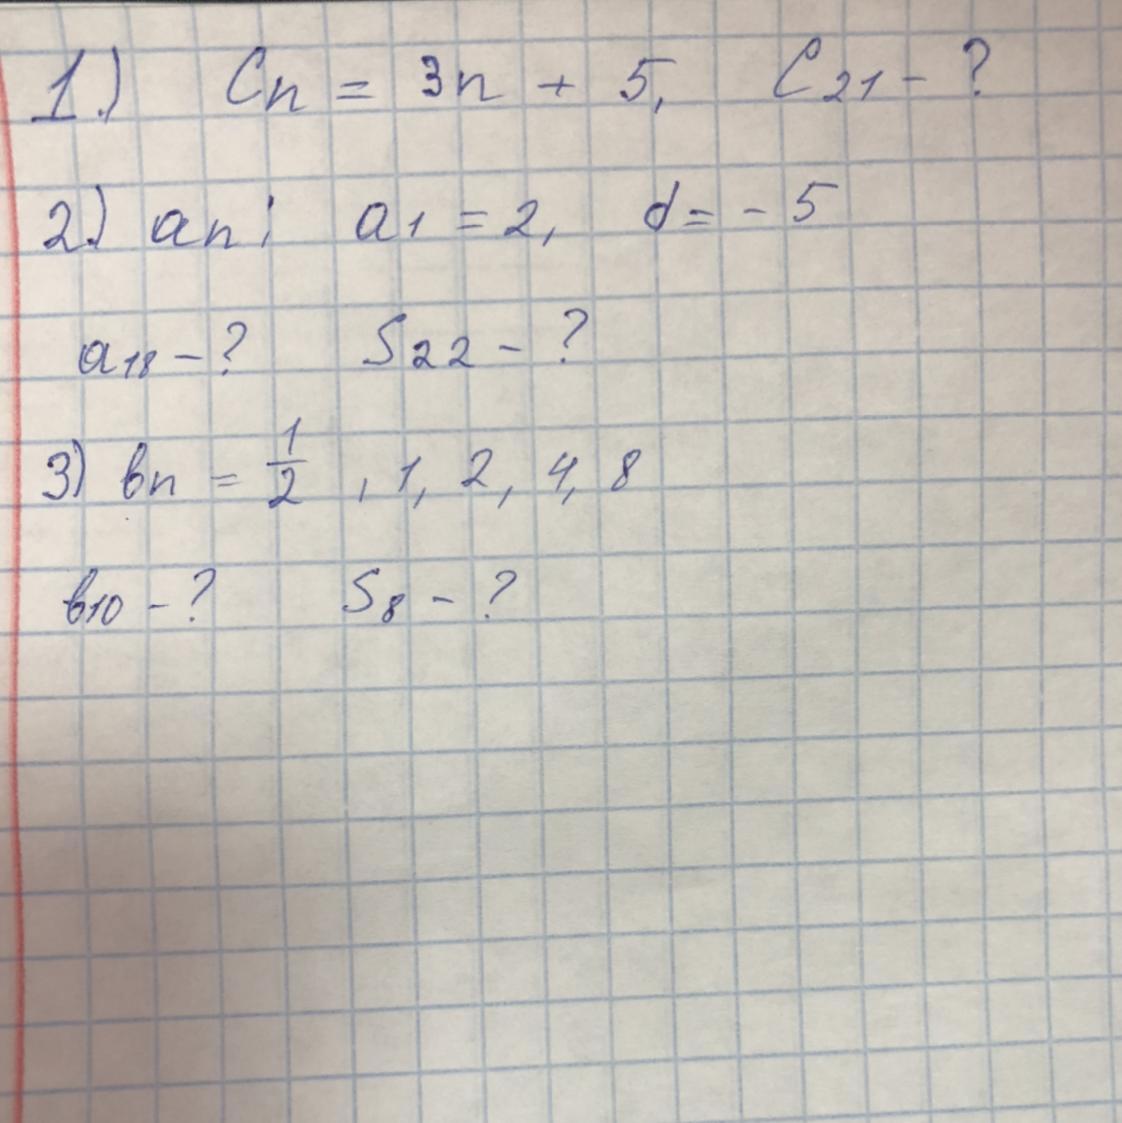 1.) Cn = 3n + 5, C21 - ?
2.) an: a1 = 2, d = - 5
a18 - ? S22 - ?
3) bn = 1/2, 1, 2, 4, 8
b10 - ? S8 - ?